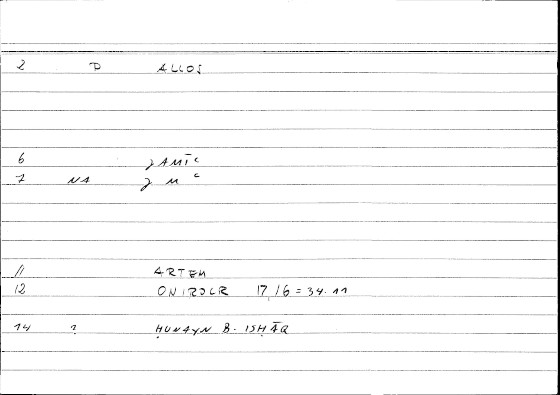 2 D ALLOS
6 ǧAMĪʿ
7 NA ǧ M ʿ
11 ARTEM
12 ONIROCR 17,16 = 34.11
14 ? ḤUNAYN B. ISḤĀQ